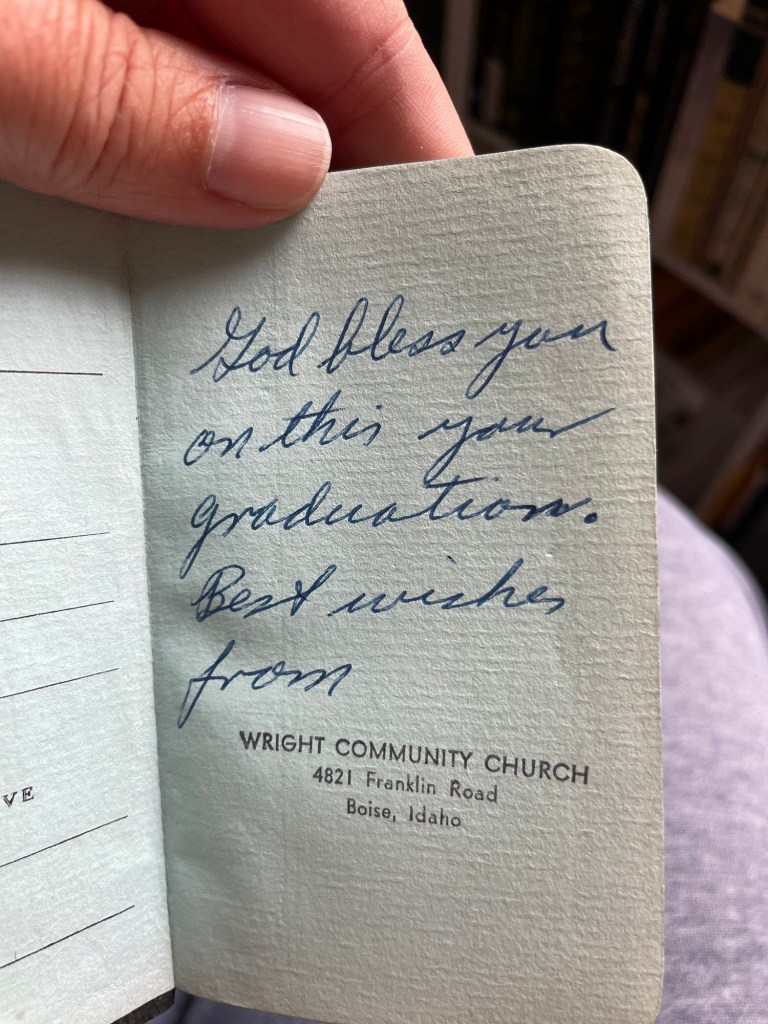 God bless you
on this your
graduation.
Best wishes
from
WRIGHT COMMUNITY CHURCH
4821 Franklin Road
Boise, Idaho
VE